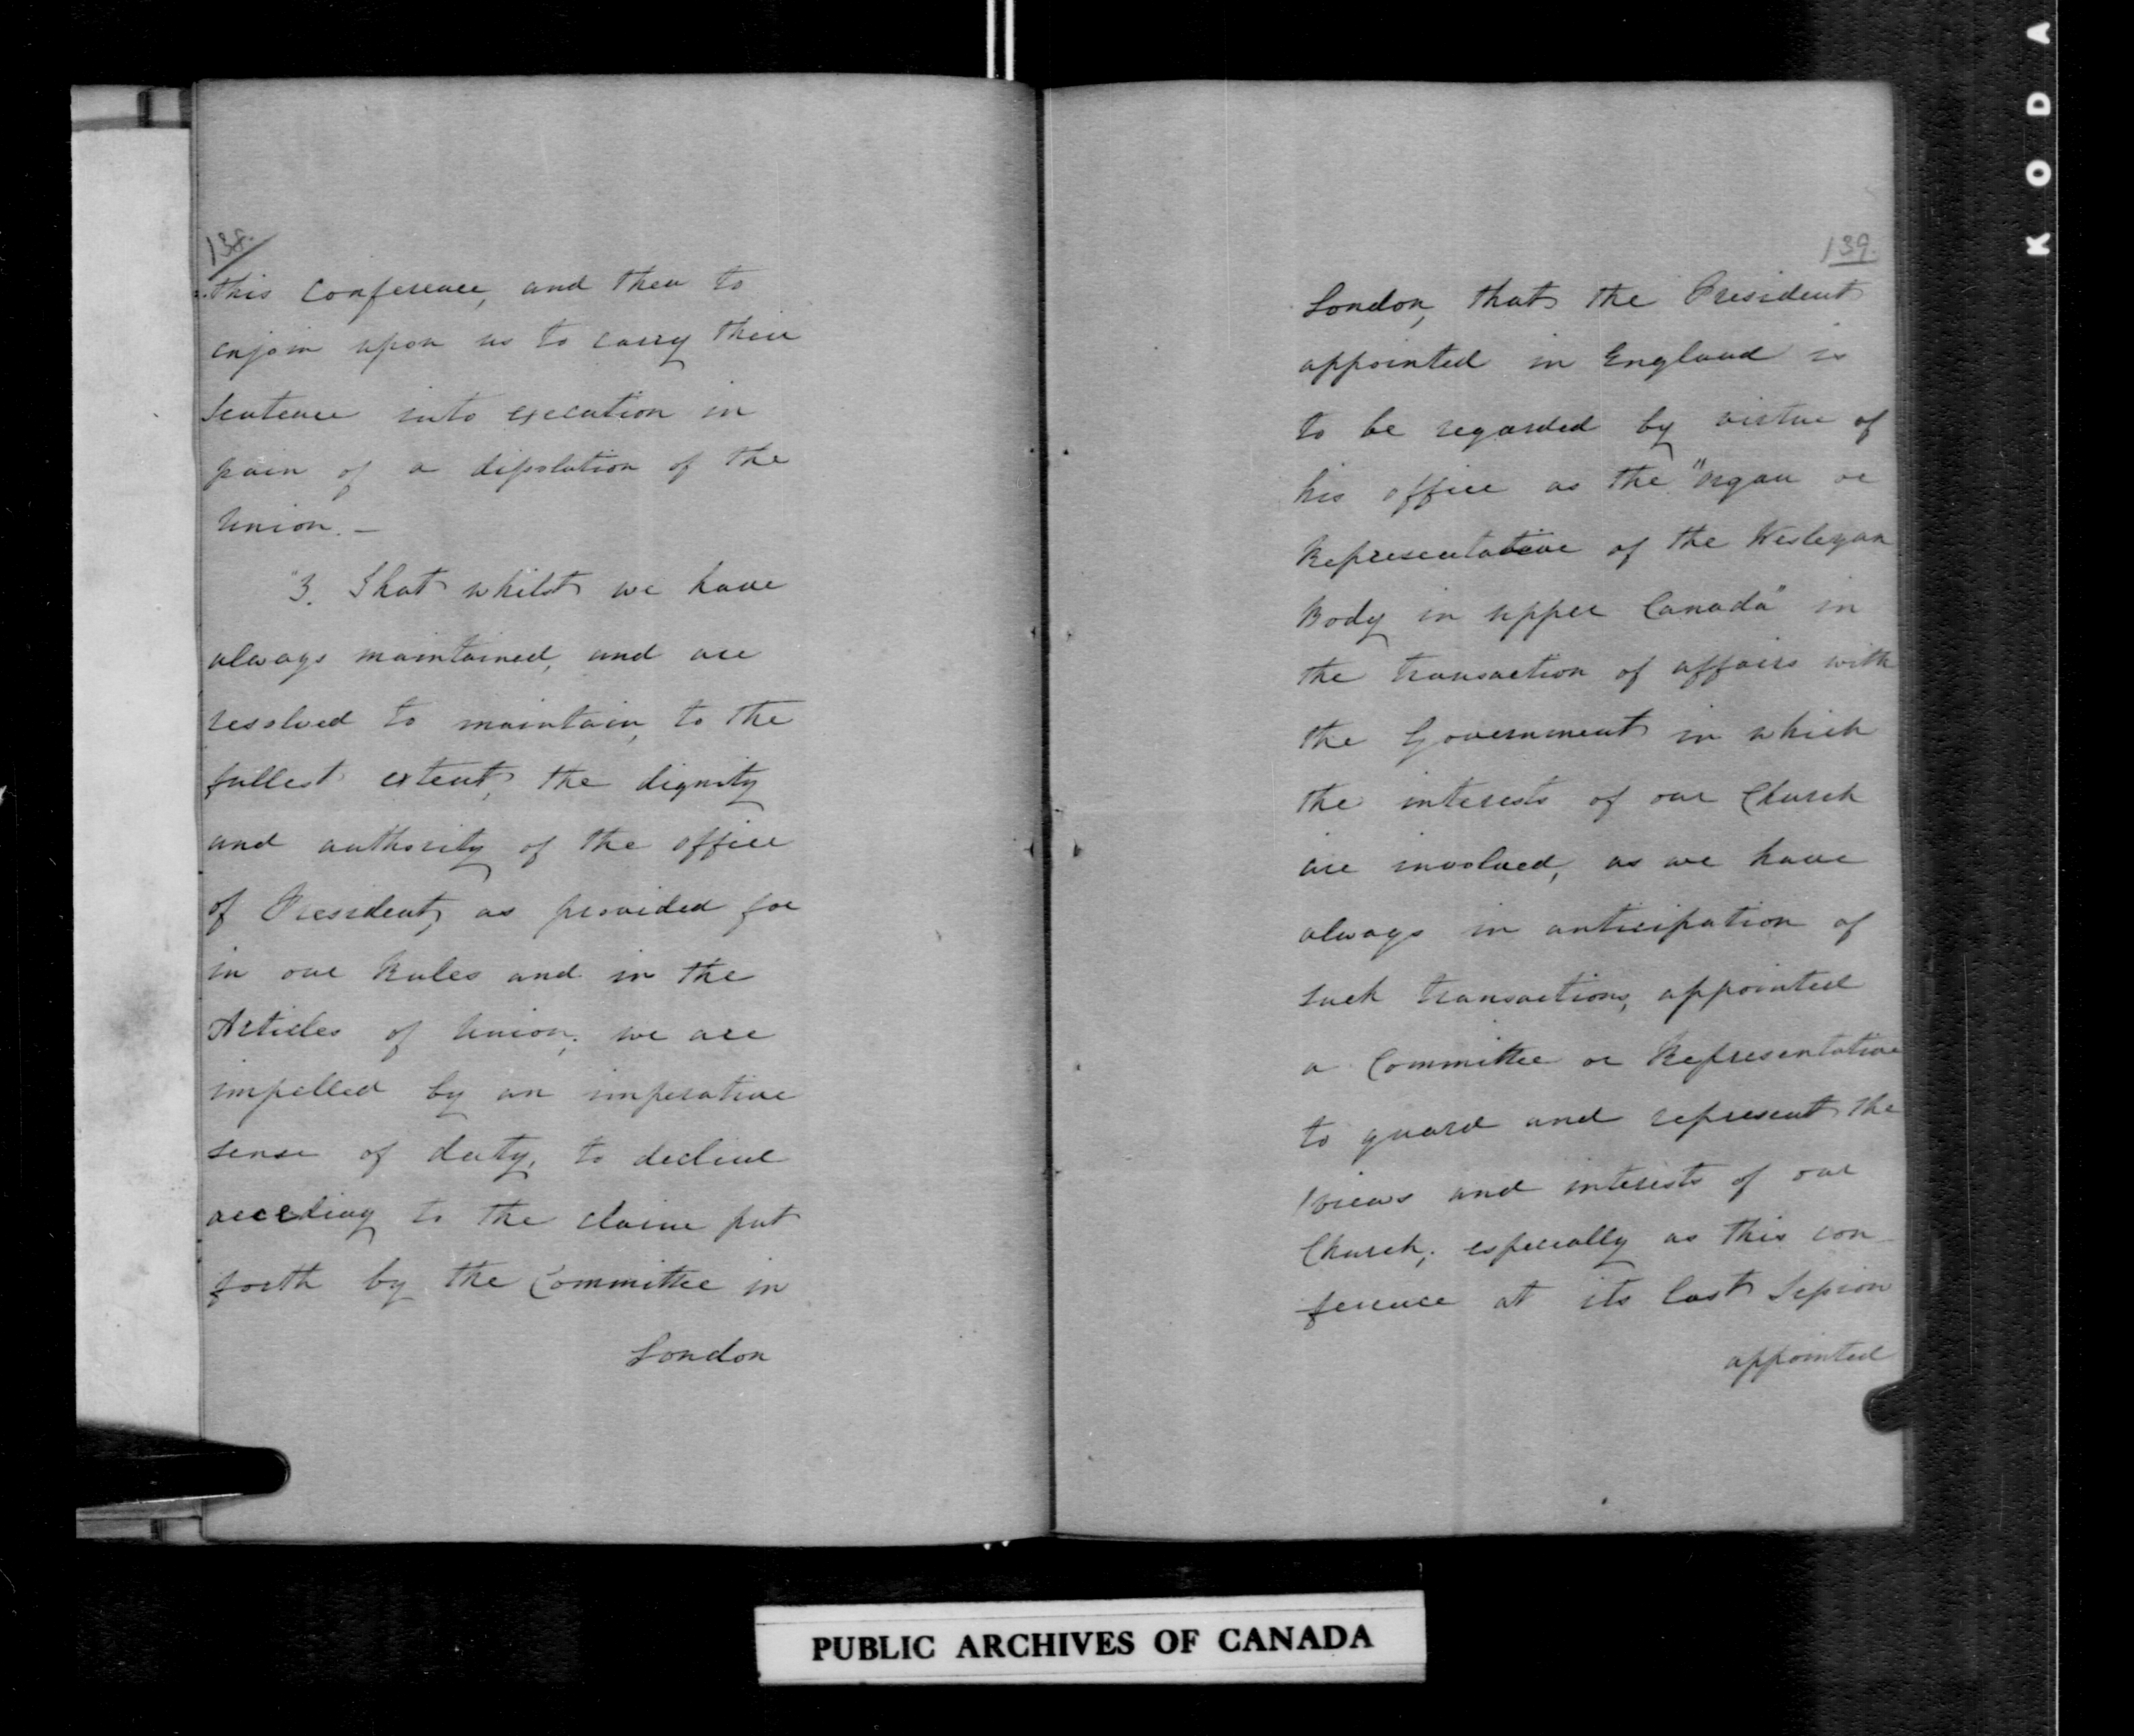 138.
this Conference, and then to
enjoin upon us to carry their
Sentence into execution in
pain of a dissolution of the
Union. —
"3. That whilst we have
always maintained, and are
resolved to maintain, to the
fullest extent, the dignity
and authority of the office
of President, as provided for
in our Rules and in the
Articles of Union; we are
impelled by an imperative
sense of duty, to decline
acceding to the claim put
forth by the Committee in
London
139.
London, that the President
appointed in England is
to be regarded by virtue of
his office as the "organ or
Representative of the Wesleyan
Body in Upper Canada" in
the transaction of affairs with
the Government in which
the interests of our Church
are involved, as we have
always in anticipation of
such transactions, appointed
a Committee or Representative
to guard and represent the
views and interests of our
Church; especially as this con
ference at its last Session
appointed
PUBLIC ARCHIVES OF CANADA
KODA